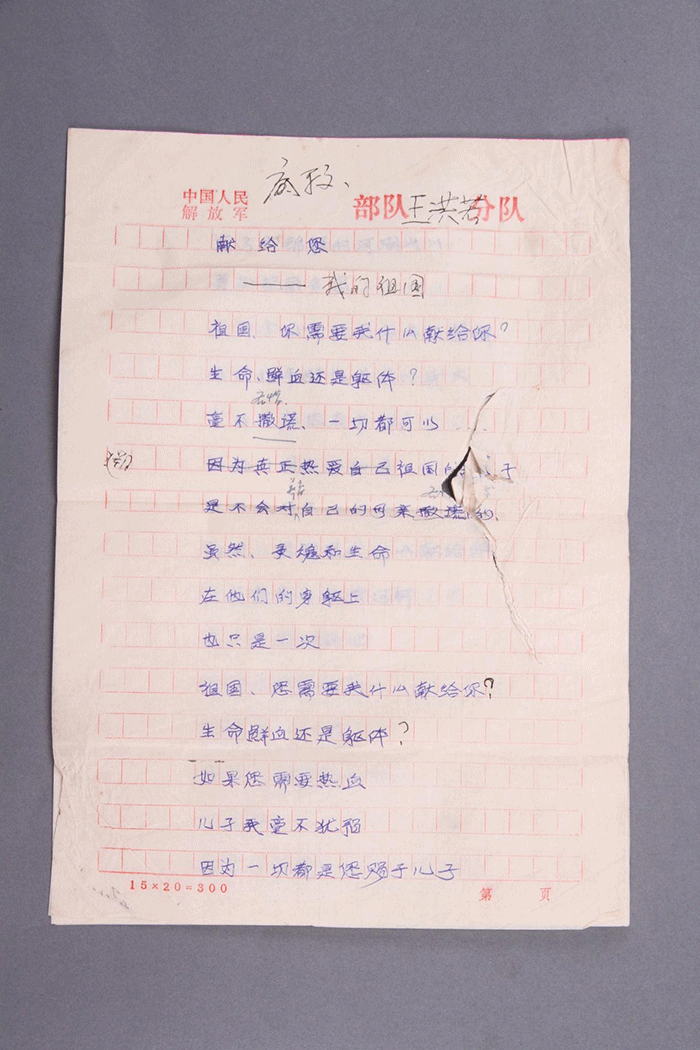 中国人民
解放军
底稿、
部队王洪君分队
献给您
——我的祖国
祖国、你需要我什么献给你?
生命、鲜血还是躯体?
毫不撒谎、一切都可以……
因为真正热爱自己祖国的 子
是不会对自己的可亲撒谎的、
虽然、灵魂和生命
在他们的身躯上
也只是一次
祖国、您需要我什么献给你?
生命鲜血还是躯体?
如果您需要热血
儿子我毫不犹豫
因为一切都是您赐于儿子
15×20=300
第 页